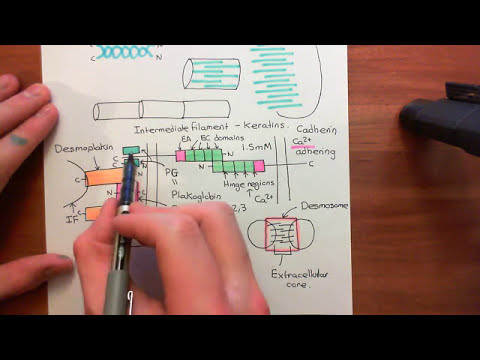 C N
Intermediate Filament - Keratins.
Cadherin
Ca2+
adhering
EA EC domains
1.5mM
Desmoplakin
N
C
N
C
PG
N
C
"
Hinge regions
Plakoglobin
Ca2+
N
C
2,3
IF
Desmosome
Extracellular
core.